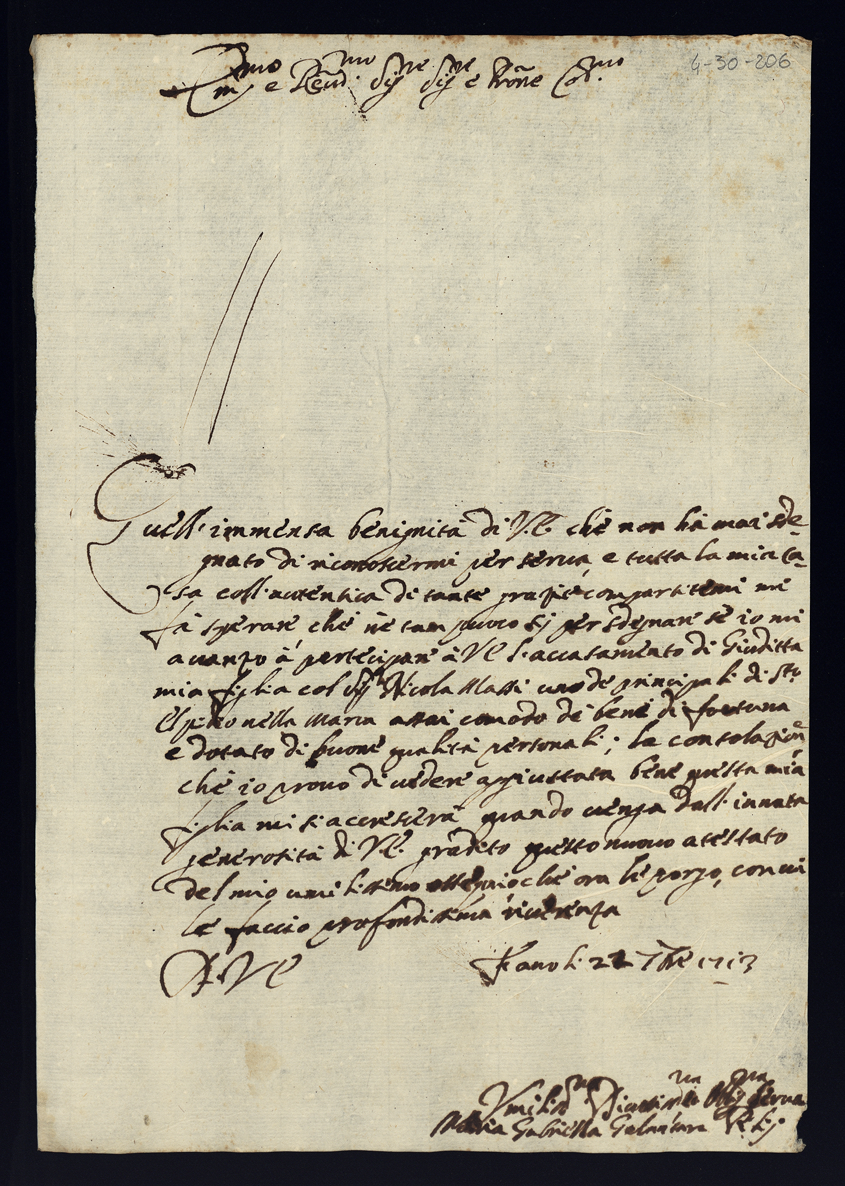 4-30-206
Em.mo e Rev.mo Sig.re Sig.re e Prone Col.mo
Quell'immensa benignità di V.E. che non hà mai sde-
gnato di riconoscermi per serva, e tutta la mia Ca-
sa coll'autentica di tante grazie compartitemi mi
fà sperare, che ne tam poco si per sdegnare se io mi
avanzo à partecipare à VE l'accasamento di Giuditta
mia figlia col Sig.r Nicola Massi uno de principali di St.o
Elpidio nella Marca assai comodo de beni di fortuna
e dotato di buone qualità personali; la consolazione
che io provo di vedere aggiustata bene questa mia
figlia mi si accrescerà quando venga dall'innata
generosità di V.E. gradito questo nuovo atestato
del mio umilissimo ossequio che ora le porgo, con cui
le faccio profondissima riverenza
D. V E
Fano li 22 7bre 1713
Umilis.ma Divotis.ma Obl.ma Serva
Maria Gabriella Galantara